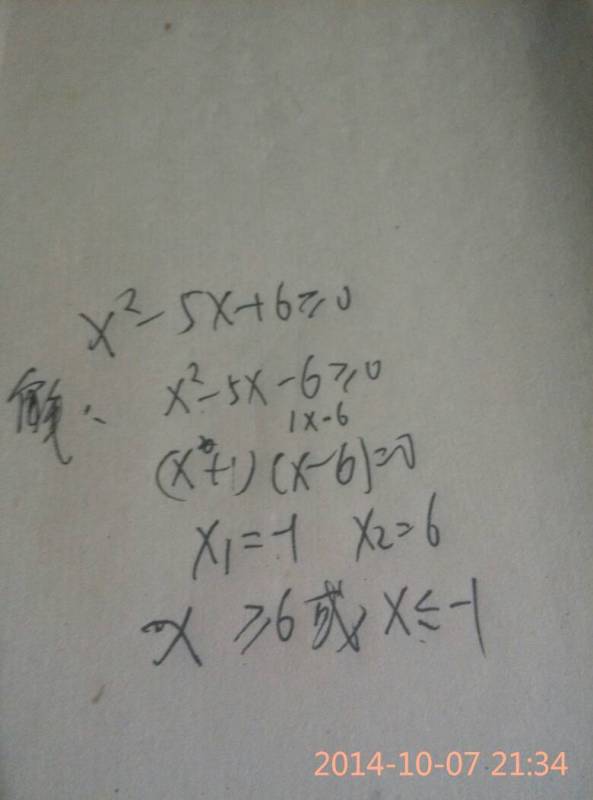 x²-5x+6≥0
解: x²-5x-6≥0
1x-6
(x+1)(x-6)=0
x₁=-1 x₂=6
x≥6或x≤-1
2014-10-07 21:34